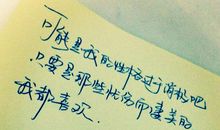 可能是我的性格过于消极吧
只要是那些忧伤而凄美的
我都喜欢.